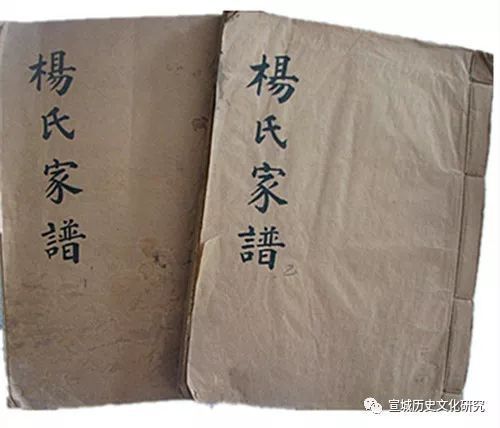 楊氏家譜
楊氏家譜
宣城历史文化研究